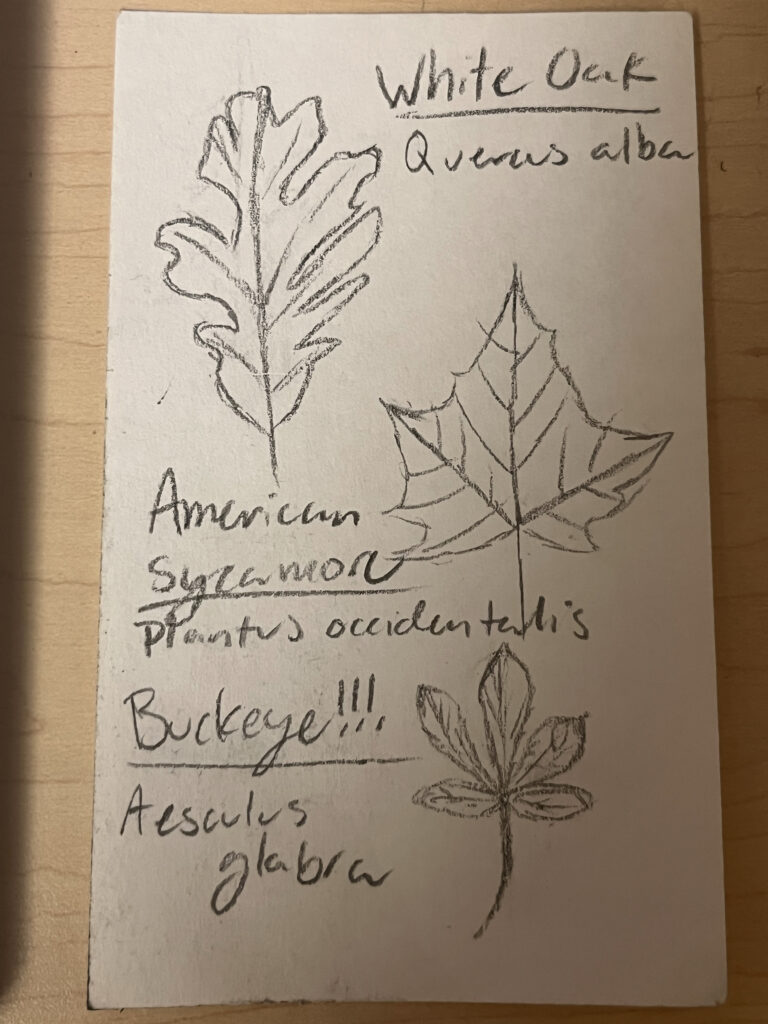 White Oak
Quercus alba
American
Sycamore
Plantus occidentalis
Buckeye!!!
Aesculus
glabra